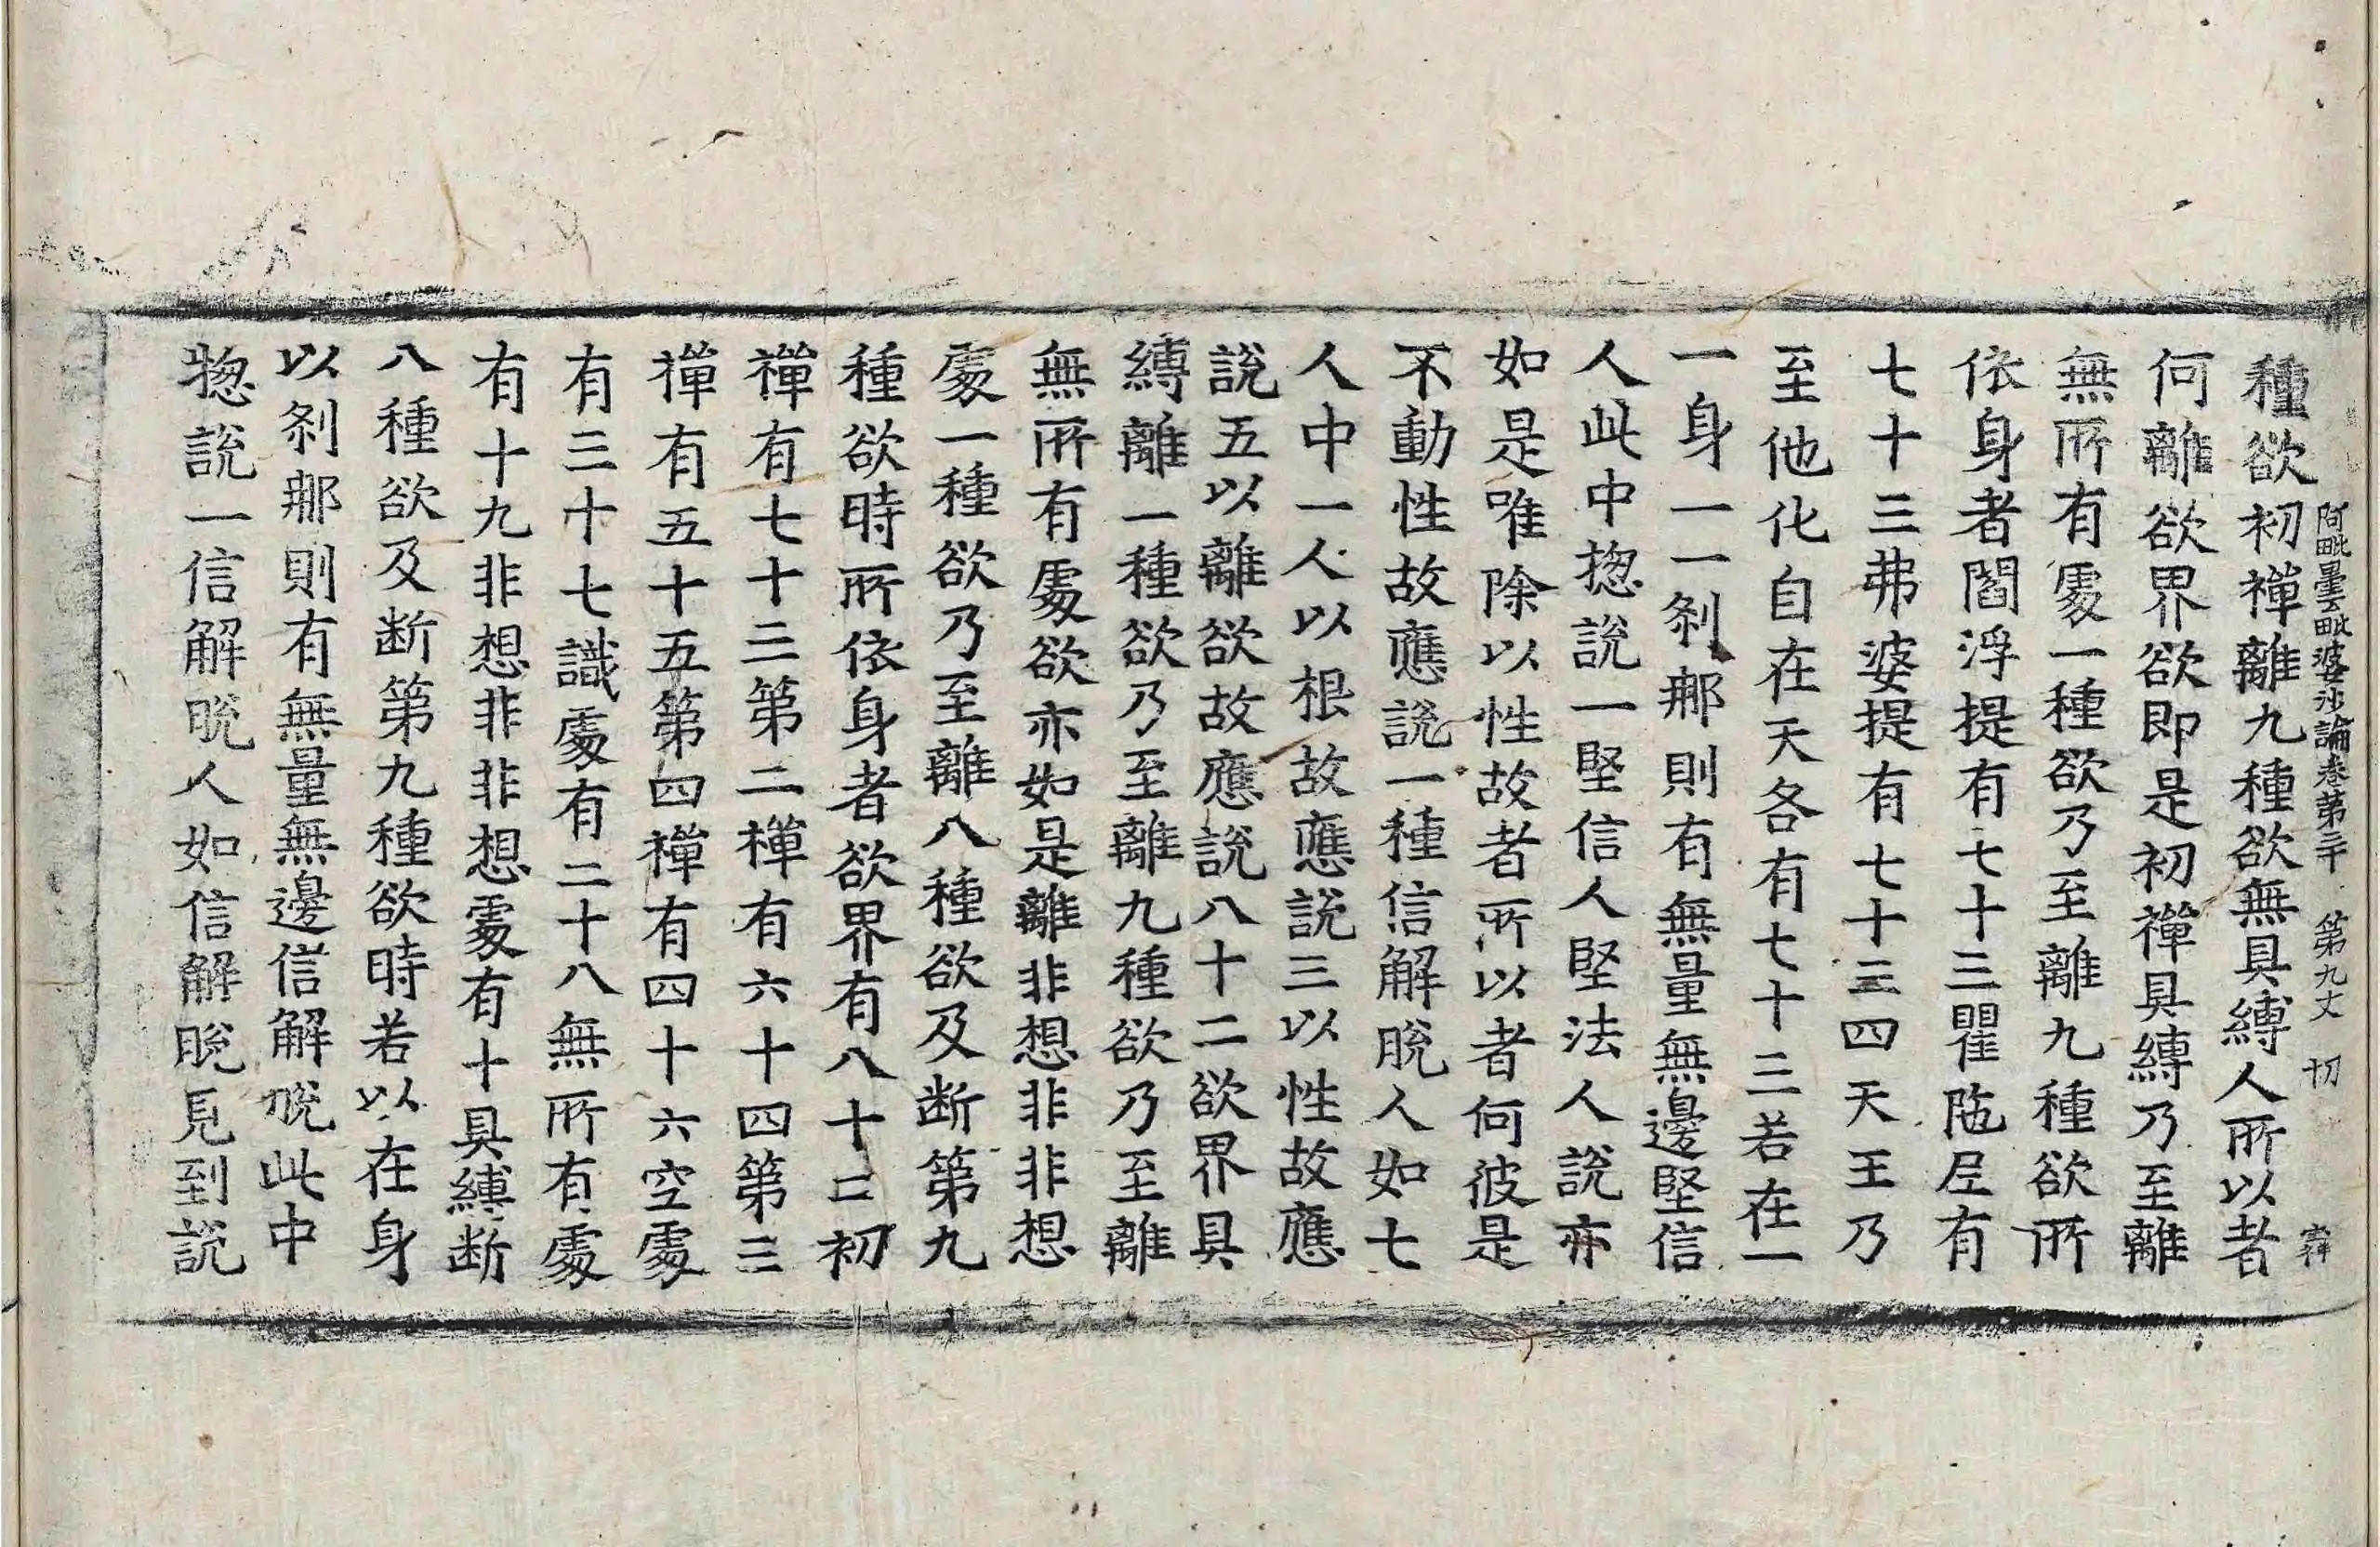 阿毗曇毗婆沙論卷第三十 第九丈 切
種欲初禪離九種欲無具縛人所以者
何離欲界欲即是初禪具縛乃至離
無所有處一種欲乃至離九種欲所
依身者閻浮提有七十三瞿陁尼有
七十三弗婆提有七十三四天王乃
至他化自在天各有七十三若在一
一身一一剎那則有無量無邊堅信
人此中揔說一堅信人堅法人說亦
如是唯除以性故者所以者何彼是
不動性故應說一種信解脫人如七
人中一人以根故應說三以性故應
說五以離欲故應說八十二欲界具
縛離一種欲乃至離九種欲乃至離
無所有處欲亦如是離非想非非想
處一種欲乃至離八種欲及断第九
種欲時所依身者欲界有八十二初
禪有七十三第二禪有六十四第三
禪有五十五第四禪有四十六空處
有三十七識處有二十八無所有處
有十九非想非非想處有十具縛断
八種欲及断第九種欲時若以在身
以剎那則有無量無邊信解脫此中
揔說一信解脫人如信解脫見到說